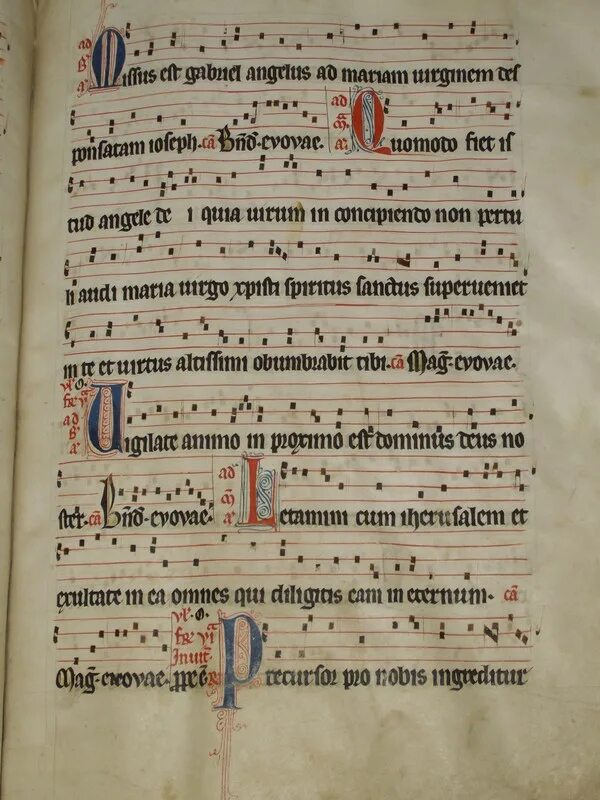 ad Missus est gabriel angelus ad mariam uirginem des
ponsatam ioseph. ca Bnd. evovae. ad Quomodo fiet is
tud angele de i quia uirum in concipiendo non pertu
li audi maria uirgo xpisti spiritus sanctus superueniet
in te et uirtus altissimi obumbrabit tibi. ca Mag. evovae.
ad Uigilate animo in proximo est dominus deus no
ster. ca Bnd. evovae. ad Letamini cum iherusalem et
exultate in ea omnes qui diligitis eam in eternum. ca
Mag. evovae. Inuit. Precursor pro nobis ingreditur